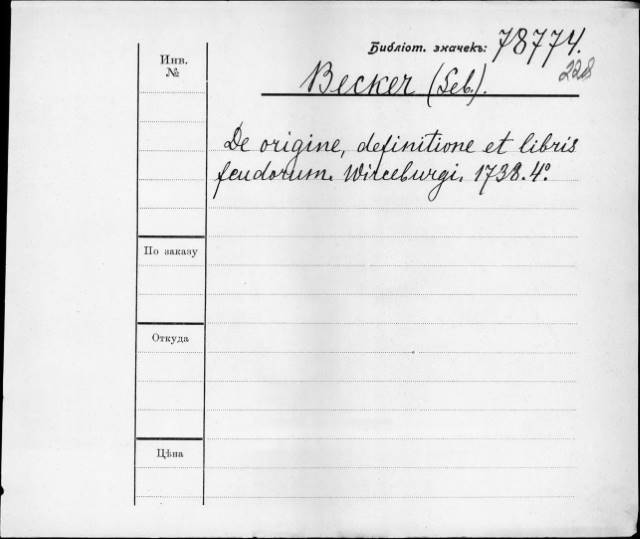 Библіот. значекъ: 78774.
228
Инв.
№
Becker (Seb.).
De origine, definitione et libris
feudorum. Wirceburgi. 1738. 4°.
По заказу
Откуда
Цѣна